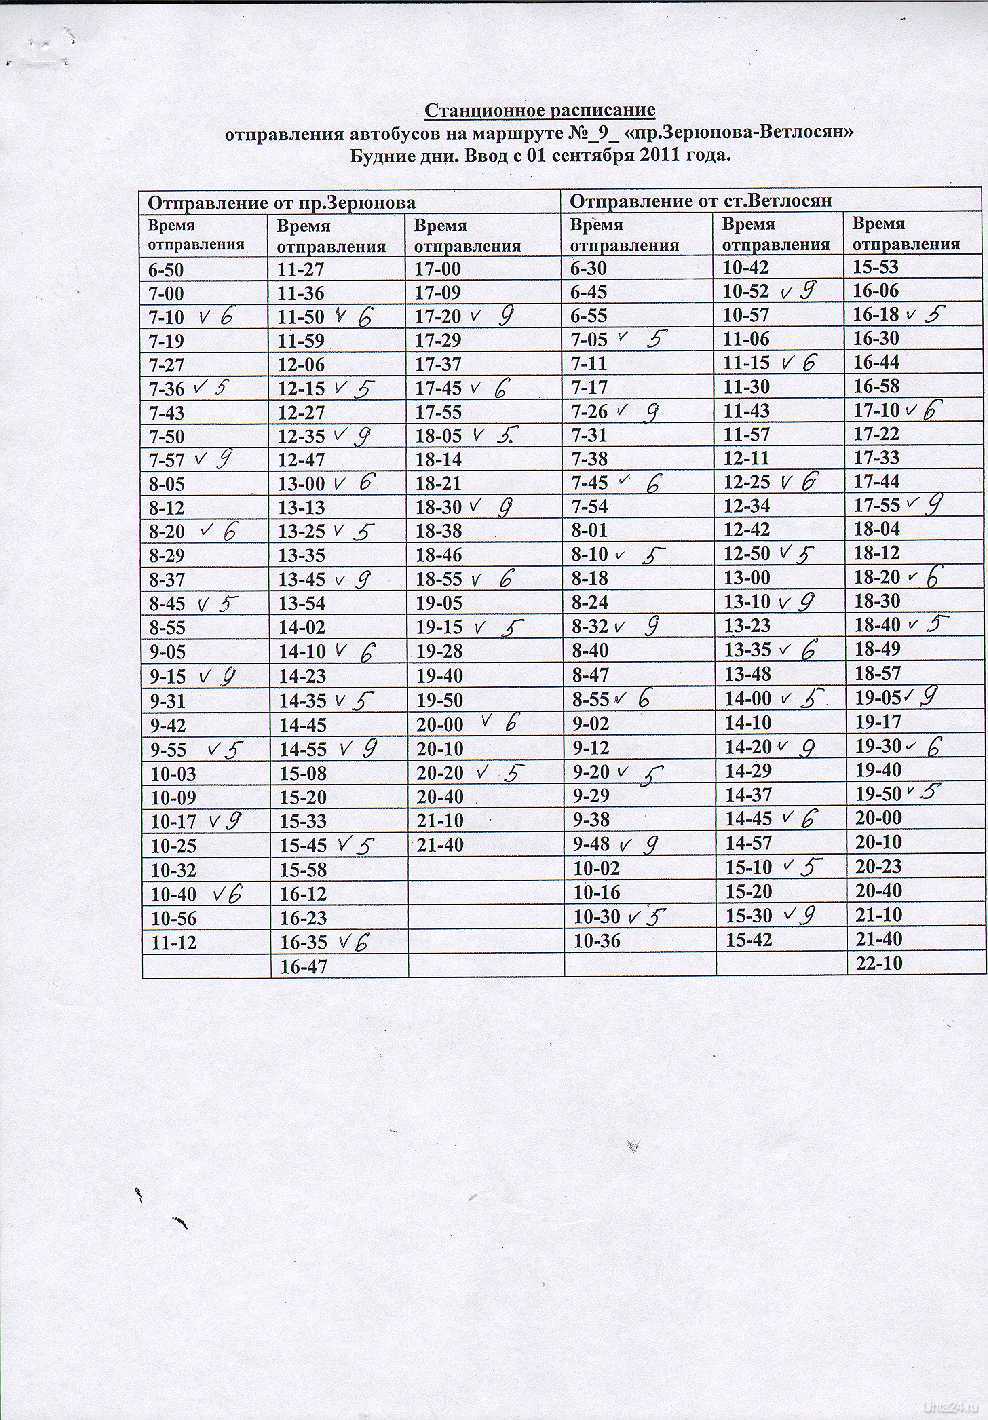 Станционное расписание
отправления автобусов на маршруте №_9_ «пр.Зерюнова-Ветлосян»
Будние дни. Ввод с 01 сентября 2011 года.
Отправление от пр.Зерюнова Отправление от ст.Ветлосян
Время Время Время Время Время Время
отправления отправления отправления отправления отправления отправления
6-50 11-27 17-00 6-30 10-42 15-53
7-00 11-36 17-09 6-45 10-52 ✓ 9 16-06
7-10 ✓ 6 11-50 ✓ 6 17-20 ✓ 9 6-55 10-57 16-18 ✓ 5
7-19 11-59 17-29 7-05 ✓ 5 11-06 16-30
7-27 12-06 17-37 7-11 11-15 ✓ 6 16-44
7-36 ✓ 5 12-15 ✓ 5 17-45 ✓ 6 7-17 11-30 16-58
7-43 12-27 17-55 7-26 ✓ 9 11-43 17-10 ✓ 6
7-50 12-35 ✓ 9 18-05 ✓ 5 7-31 11-57 17-22
7-57 ✓ 9 12-47 18-14 7-38 12-11 17-33
8-05 13-00 ✓ 6 18-21 7-45 ✓ 6 12-25 ✓ 6 17-44
8-12 13-13 18-30 ✓ 9 7-54 12-34 17-55 ✓ 9
8-20 ✓ 6 13-25 ✓ 5 18-38 8-01 12-42 18-04
8-29 13-35 18-46 8-10 ✓ 5 12-50 ✓ 5 18-12
8-37 13-45 ✓ 9 18-55 ✓ 6 8-18 13-00 18-20 ✓ 6
8-45 ✓ 5 13-54 19-05 8-24 13-10 ✓ 9 18-30
8-55 14-02 19-15 ✓ 5 8-32 ✓ 9 13-23 18-40 ✓ 5
9-05 14-10 ✓ 6 19-28 8-40 13-35 ✓ 6 18-49
9-15 ✓ 9 14-23 19-40 8-47 13-48 18-57
9-31 14-35 ✓ 5 19-50 8-55 ✓ 6 14-00 ✓ 5 19-05 ✓ 9
9-42 14-45 20-00 ✓ 6 9-02 14-10 19-17
9-55 ✓ 5 14-55 ✓ 9 20-10 9-12 14-20 ✓ 9 19-30 ✓ 6
10-03 15-08 20-20 ✓ 5 9-20 ✓ 5 14-29 19-40
10-09 15-20 20-40 9-29 14-37 19-50 ✓ 5
10-17 ✓ 9 15-33 21-10 9-38 14-45 ✓ 6 20-00
10-25 15-45 ✓ 5 21-40 9-48 ✓ 9 14-57 20-10
10-32 15-58 10-02 15-10 ✓ 5 20-23
10-40 ✓ 6 16-12 10-16 15-20 20-40
10-56 16-23 10-30 ✓ 5 15-30 ✓ 9 21-10
11-12 16-35 ✓ 6 10-36 15-42 21-40
16-47 22-10
Uhta24.ru